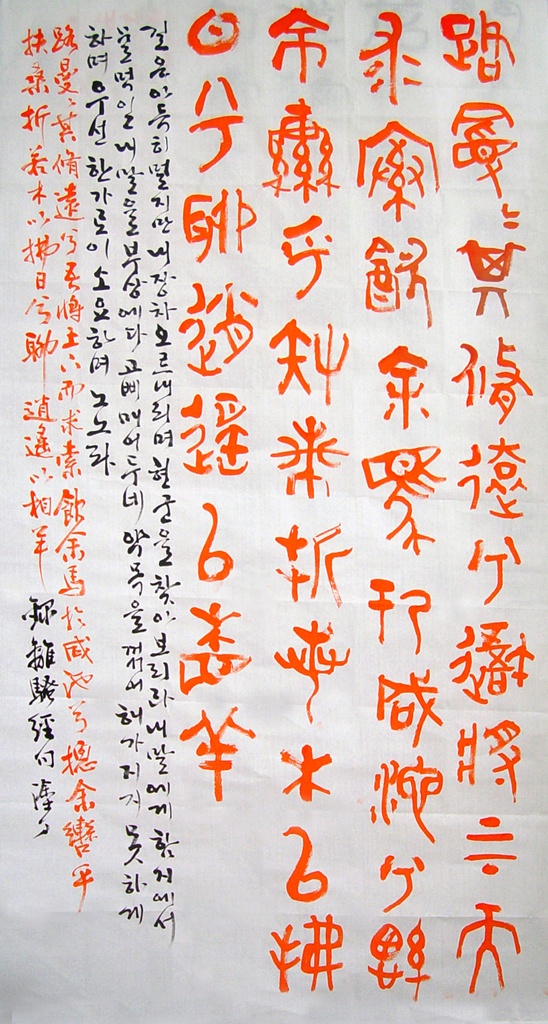 路曼〻其脩遠兮吾將上下而
求索飲余馬於咸池兮總
余轡乎扶桑折若木以拂
日兮聊逍遙以相羊
길은 아득히 멀지만 내 장차 오르내리며 현군을 찾아보리라 내 말에게 함지에서
물 먹일 내 말을 부상에다 고삐 매어두네 약목을 꺾어 해가 지지 못하게
하며 우선 한가로이 소요하며 노노라
路曼〻其脩遠兮吾將上下而求索飲余馬於咸池兮總余轡乎
扶桑折若木以拂日兮聊逍遙以相羊 錄離騷經句